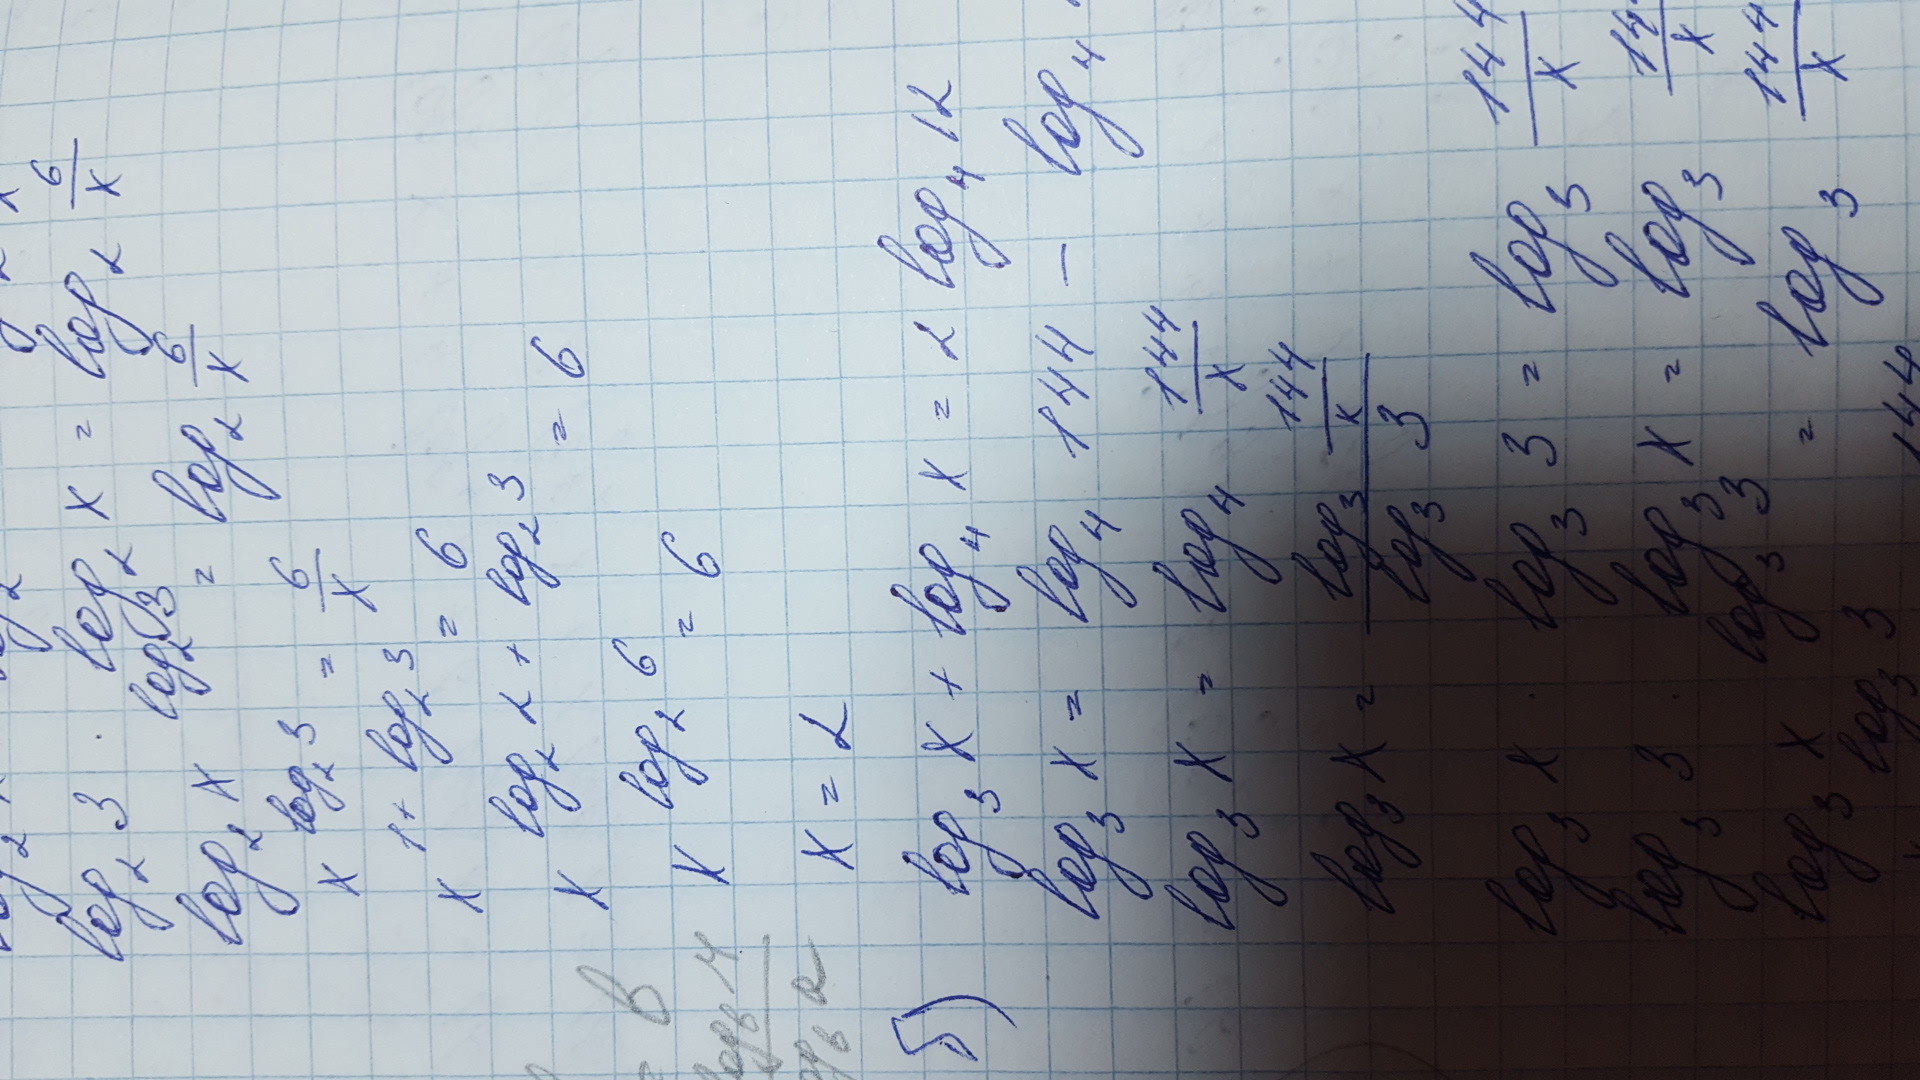 log₂ 3 · log₂ x = log₂ 6/x
log₂ x^(log₂ 3) = log₂ 6/x
x^(log₂ 3) = 6/x
x^(1+log₂ 3) = 6
x^(log₂ 2 + log₂ 3) = 6
x^(log₂ 6) = 6
x = 2
= b
б) log₃ x + log₄ x = 2 log₄ 12
log₃ x = log₄ 144 - log₄
log₃ x = log₄ 144/x
log₃ x = (log₃ 144/x)/(log₃ 3)
log₃ x · log₃ 3 = log₃ 144/x
log₃ 3 · log₃ x = log₃ 14/x
log₃ x^(log₃ 3) = log₃ 144/x
x^(log₃ 3) 144